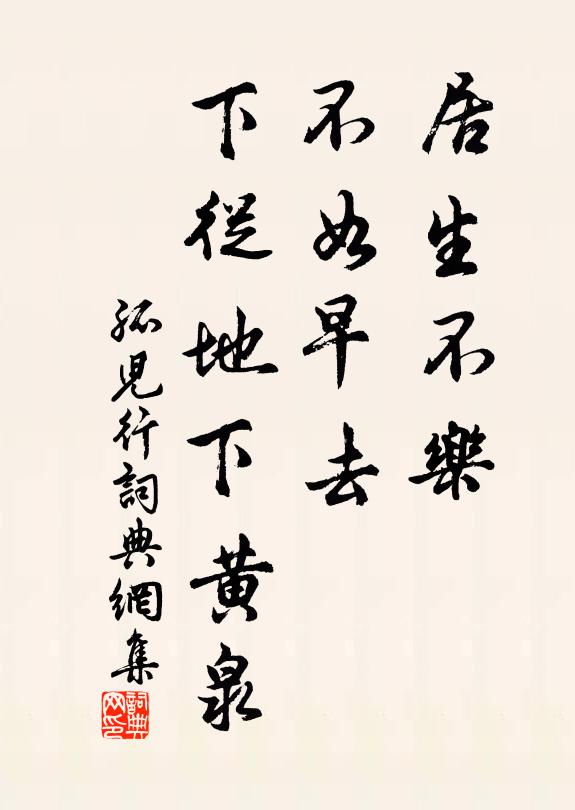 居生不樂
不如早去
下從地下黃泉
孤兒行詞典網集
詞典
网印